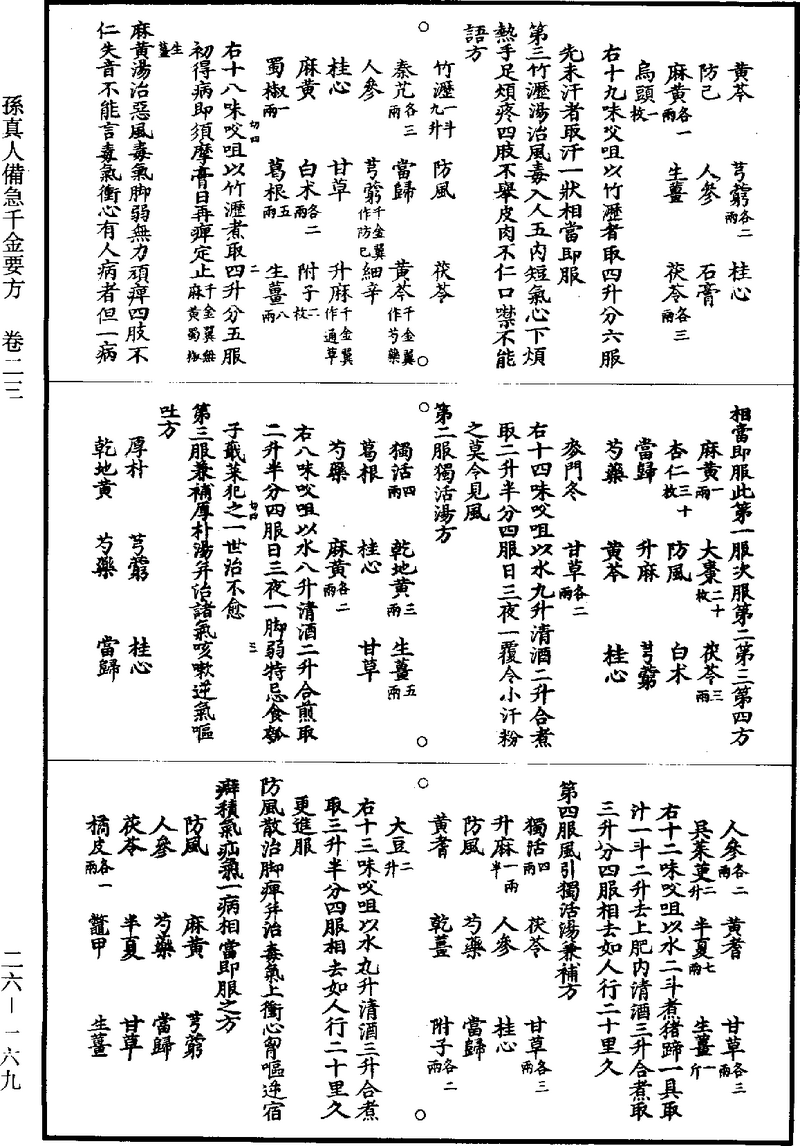 黃芩 芎藭各二兩 桂心
防己 人參 石膏
麻黃各一兩 生薑 茯苓各三兩
烏頭一枚
右十九味㕮咀以竹瀝煮取四升分六服
先未汗者取汗一狀相當即服
第三竹瀝湯治風毒入人五內短氣心下煩
熱手足煩疼四肢不舉皮肉不仁口噤不能
語方
竹瀝一斗九升 防風 茯苓
秦艽各三兩 當歸 黃芩千金翼作芍藥
人參 芎藭千金翼作防己 細辛
桂心 甘草 升麻千金翼作通草
麻黃 白朮各二兩 附子二枚
蜀椒一兩 葛根五兩 生薑八兩
右十八味㕮咀切四以竹瀝煮取四升分五服
初得病即須摩膏日再痺定止二千金翼無麻黃蜀椒生薑
麻黃湯治惡風毒氣脚弱無力頑痺四肢不
仁失音不能言毒氣衝心有人病者但一病
相當即服此第一服次服第二第三第四方
麻黃一兩 大棗二十枚 茯苓三兩
杏仁三十枚 防風 白朮
當歸 升麻 芎藭
芍藥 黃芩 桂心
麥門冬 甘草各二兩
右十四味㕮咀以水九升清酒二升合煮
取二升半分四服日三夜一覆令小汗粉
之莫令見風
第二服獨活湯方
獨活四兩 乾地黃三兩 生薑五兩
葛根 桂心 甘草
芍藥 麻黃各二兩
右八味㕮咀以水八升清酒二升合煎取
二升半分四服日三夜一脚弱特忌食瓠
子蕺菜犯之一世治不愈
第三服兼補厚朴湯并治諸氣咳嗽逆氣嘔
吐方
厚朴 芎藭 桂心
乾地黃 芍藥 當歸
人參各二兩 黃耆 甘草各三兩
吳茱萸二升 半夏七兩 生薑一斤
右十二味㕮咀以水二斗煮猪蹄一具取
汁一斗二升去上肥內清酒三升合煮取
三升分四服相去如人行二十里久
第四服風引獨活湯兼補方
獨活四兩 茯苓 甘草各三兩
升麻一兩半 人參 桂心
防風 芍藥 當歸
黃耆 乾薑 附子各二兩
大豆二升
右十三味㕮咀以水九升清酒三升合煮
取三升半分四服相去如人行二十里久
更進服
防風散治脚痺并治毒氣上衝心胷嘔逆宿
癖積氣疝氣一病相當即服之方
防風 麻黃 芎藭
人參 芍藥 當歸
茯苓 半夏 甘草
橘皮各一兩 鼈甲 生薑
孫真人備急千金要方 卷二三
二六—一六九